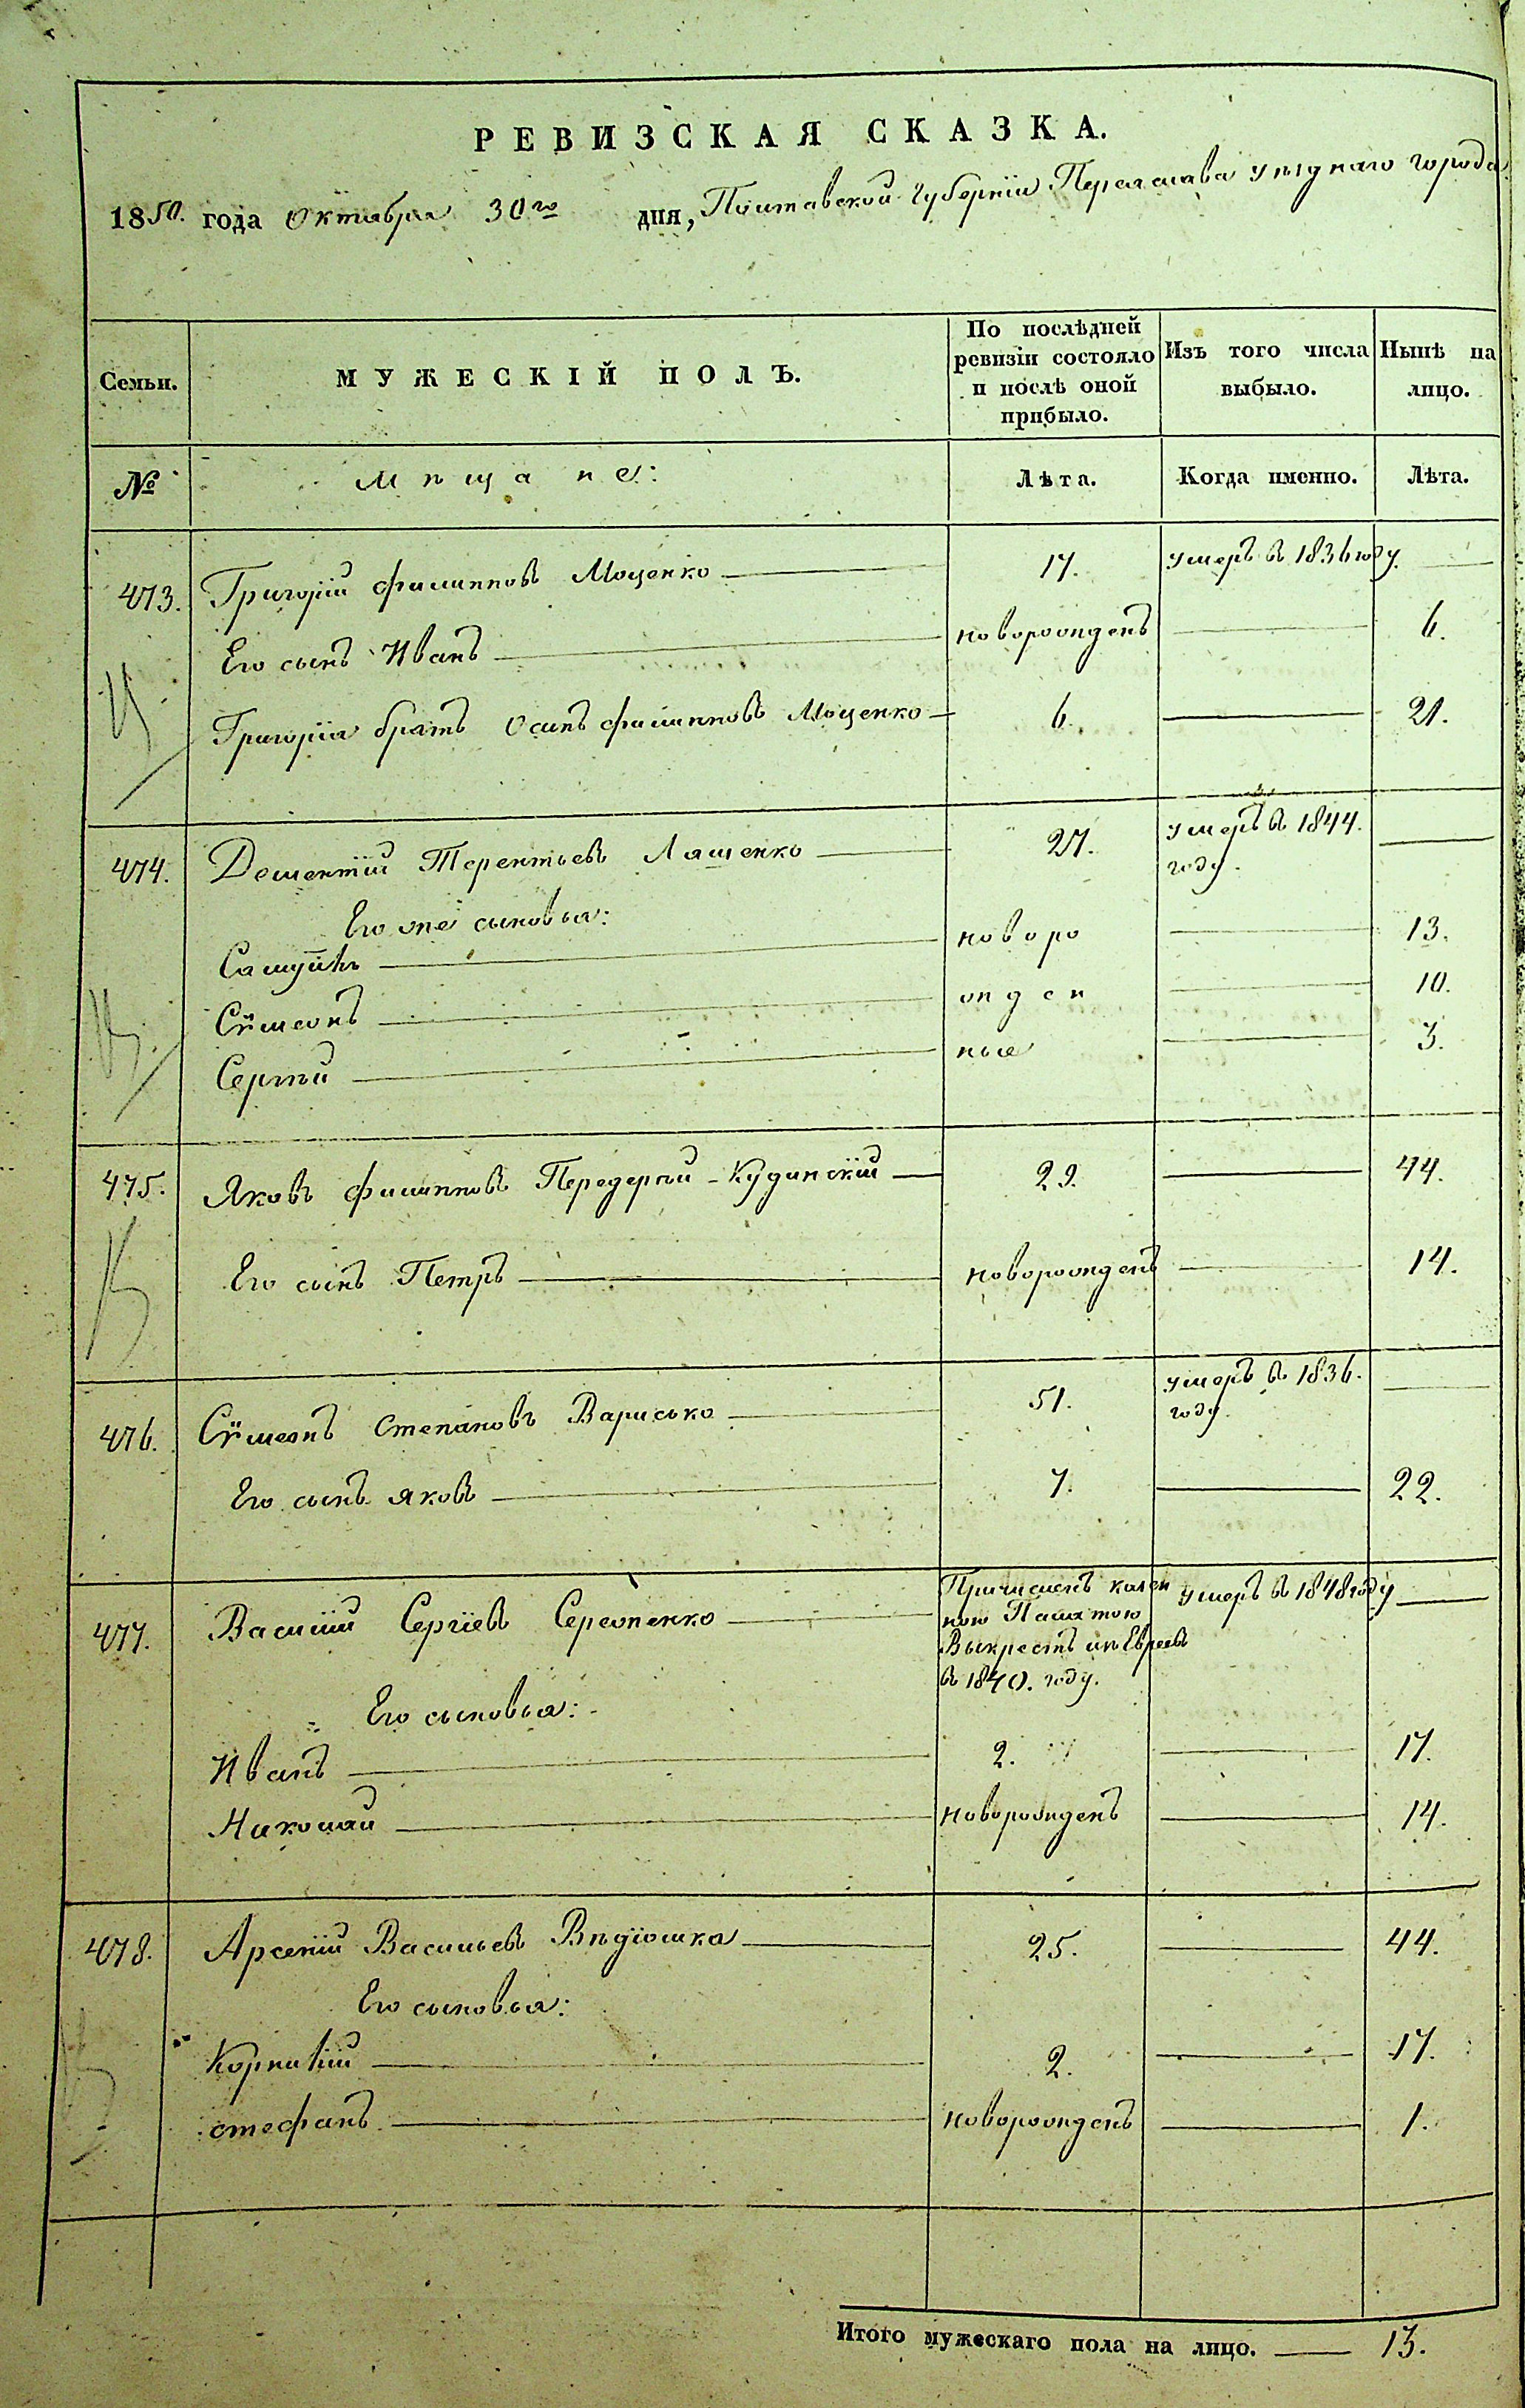 РЕВИЗСКАЯ СКАЗКА.
1850. года Октября 30го дня, Полтавской Губерніи Переяслава уѣзднаго города
Семьи. МУЖЕСКІЙ ПОЛЪ. По послѣдней ревизіи состояло и послѣ оной прибыло. Изъ того числа выбыло. Нынѣ на лицо.
№ Мѣщане: Лѣта. Когда именно. Лѣта.
473. Григорій Филипповъ Моценко 17. умеръ в 1836 году.
Его сынъ Иванъ новорожденъ 6.
Григорія братъ Осипъ Филипповъ Моценко 6. 21.
474. Дементій Терентьевъ Ляшенко 27. умеръ в 1844. году.
Его же сыновья:
Самуилъ новоро 13.
Сѵмеонъ жден 10.
Сергѣй ные 3.
475. Яковъ Филипповъ Передерѣй-Кудинскій 29. 44.
Его сынъ Петръ новорожденъ 14.
476. Сѵмеонъ Степановъ Варисько 51. умеръ в 1836. году.
Его сынъ Яковъ 7. 22.
477. Василій Сергіевъ Сереженко Причисленъ казен
ною Палатою
Выкрестъ изъ Евреевъ
в 1840. году. умеръ в 1848 году
Его сыновья:
Иванъ 2. 17.
Николай новорожденъ 14.
478. Арсеній Васильевъ Вѣдіошка 25. 44.
Его сыновья:
Корнилій 2. 17.
Стефанъ новорожденъ 1.
Итого мужескаго пола на лицо. 13.